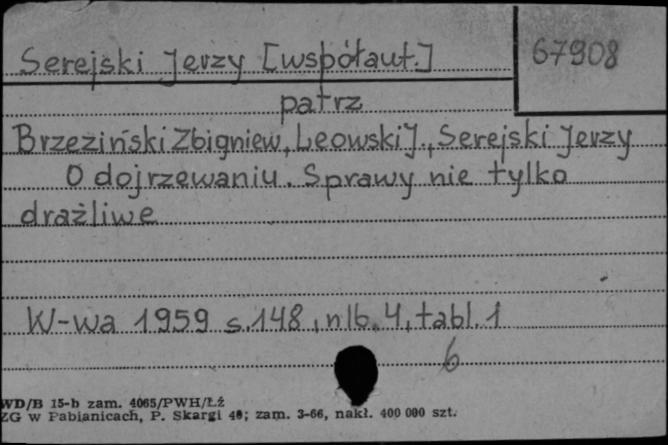 Serejski Jerzy [współaut.]
67908
patrz
Brzeziński Zbigniew, Leowski J., Serejski Jerzy
O dojrzewaniu. Sprawy nie tylko
drażliwe
W-wa 1959 s.148, nlb. 4, tabl. 1
6
WD/B 15-b zam. 4065/PWH/Łź
ZG w Pabianicach, P. Skargi 40; zam. 3-66, nakł. 400 000 szt.